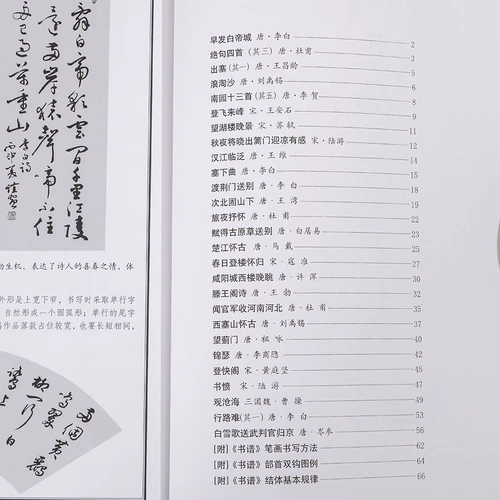 辞白帝彩云间千里江陵
还两岸猿声啼不住
已过万重山 李白诗
动生机，表达了诗人的喜春之情，体
外形是上宽下窄，书写时采取单行字
自然形成一个圆弧形；单行的尾字
作品落款占位较宽，也要长短相间，
两个黄鹂
鸣翠
柳一行白
鹭上
早发白帝城 唐·李白 2
绝句四首（其三）唐·杜甫 3
出塞（其一）唐·王昌龄 4
浪淘沙 唐·刘禹锡 6
南园十三首（其五）唐·李贺 8
登飞来峰 宋·王安石 9
望湖楼晚景 宋·苏轼 11
秋夜将晓出篱门迎凉有感 宋·陆游 13
汉江临泛 唐·王维 15
塞下曲 唐·李白
渡荆门送别 唐·李白 18
次北固山下 唐·王湾 20
旅夜抒怀 唐·杜甫 22
赋得古原草送别 唐·白居易 23
楚江怀古 唐·马戴 25
春日登楼怀归 宋·寇准 27
咸阳城西楼晚眺 唐·许浑 29
滕王阁诗 唐·王勃 31
闻官军收河南河北 唐·杜甫 33
西塞山怀古 唐·刘禹锡 35
望蓟门 唐·祖咏
锦瑟 唐·李商隐 40
登快阁 宋·黄庭坚 45
书愤 宋·陆游 47
观沧海 三国魏·曹操 50
行路难（其一）唐·李白 53
白雪歌送武判官归京 唐·岑参 56
[附]《书谱》笔画书写方法 62
[附]《书谱》部首双钩图例 64
[附]《书谱》结体基本规律 66